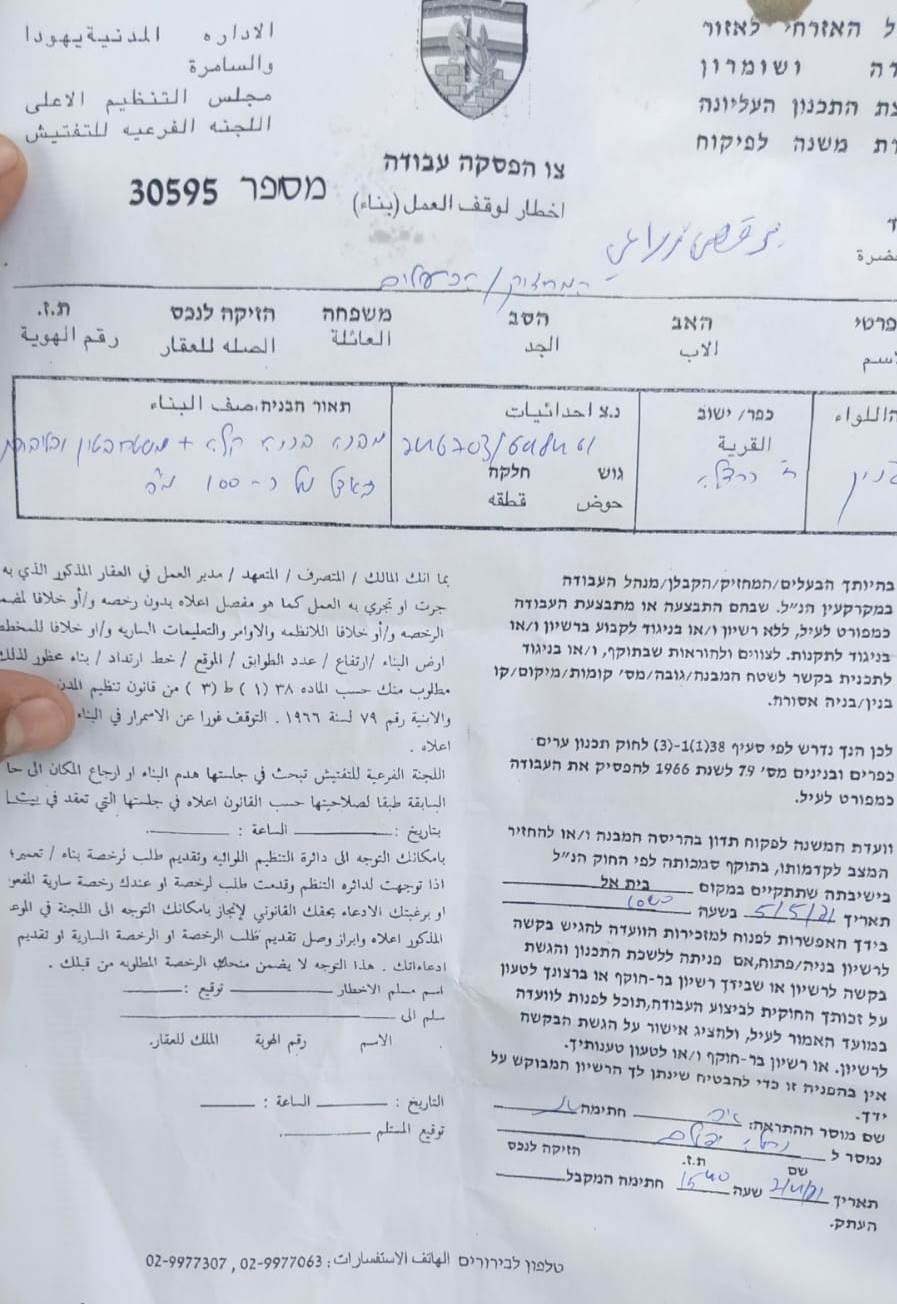 ל האזרחי לאזור
ושומרון
ת התכנון העליונה
ת משנה לפיקוח
الاداره المدنية يهودا
والسامرة
مجلس التنظيم الاعلى
اللجنه الفرعيه للتفتيش
צו הפסקה עבודה
מספר 30595
اخطار لوقف العمل (بناء)
המחזיק / הבעלים
פרטי האב הסב משפחה הזיקה לנכס ת.ז.
الاب الجد العائلة الصله للعقار رقم الهوية
اللواء
כפר/ ישוב
القرية
נ.צ احداثيات
גוש חלקה
حوض قطقه
תאור הבניה، صف البناء
100 מ"ר
בהיותך הבעלים/המחזיק/הקבלן/מנהל העבודה
במקרקעין הנ"ל. שבהם התבצעה או מתבצעת העבודה
כמפורט לעיל, ללא רשיון ו/או בניגוד לקבוע ברשיון ו/או
בניגוד לתקנות. לצווים ולהוראות שבתוקף, ו/או בניגוד
לתכנית בקשר לשטח המבנה/גובה/מס' קומות/מיקום/קו
בנין/בניה אסורה.
לכן הנך נדרש לפי סעיף 38(1)-(3) לחוק תכנון ערים
כפרים ובנינים מס' 79 לשנת 1966 להפסיק את העבודה
כמפורט לעיל.
וועדת המשנה לפקוח תדון בהריסה המבנה ו/או להחזיר
המצב לקדמותו, בתוקף סמכותה לפי החוק הנ"ל
בישיבתה שתתקיים במקום בית אל
תאריך 5/5/21 בשעה
בידך האפשרות לפנות למזכירות הוועדה להגיש בקשה
לרשיון בניה/פתוח,אם פניתה ללשכת התכנון והגשת
בקשה לרשיון או שבידך רשיון בר-חוקף או ברצונך לטעון
על זכותך החוקית לביצוע העבודה,תוכל לפנות לוועדה
במועד האמור לעיל, ולהציג אישור על הגשת הבקשה
לרשיון. או רשיון בר-חוקף ו/או לטעון טענותיך.
אין בהפניה זו כדי להבטיח שינתן לך הרשיון המבוקש על
ידך.
שם מוסר ההתראה: חתימה
נמסר ל
שם ת.ז. הזיקה לנכס
תאריך שעה חתימה המקבל
העתק.
بما انك المالك / المتصرف / المتعهد / مدير العمل في العقار المذكور الذي به
جرت او تجري به العمل كما هو مفصل اعلاه بدون رخصه و/أو خلافا
الرخصه و/أو خلافا اللانظمه والاوامر والتعليمات الساريه و/او خلافا للمخطط
ارض البناء /ارتفاع / عدد الطوابق / الموقع / خط ارتداد / بناء محظور لذلك
مطلوب منك حسب الماده ٣٨ (١) ط (٣) من قانون تنظيم المدن
والابنية رقم ٧٩ لسنة ١٩٦٦ . التوقف فورا عن الاسمرار في البناء
اعلاه .
اللجنة الفرعية للتفتيش تبحث في جلستها هدم البناء او ارجاع المكان الى
السابقة طبقا لصلاحيتها حسب القانون اعلاه في جلستها التي تعقد في
بتاريخ : الساعة :
بامكانك التوجه الى دائرة التنظيم اللوائيه وتقديم طلب لرخصة بناء / تعمير؛
اذا توجهت لدائره التنظم وقدمت طلب لرخصة او عندك رخصة سارية
او برغبتك الادعاء بحقك القانوني لإنجاز بامكانك التوجه الى اللجنة في
المذكور اعلاه وابراز وصل تقديم طلب الرخصة او الرخصة السارية او تقديم
ادعاءاتك . هذا التوجه لا يضمن منحك الرخصة المطلوبه من قبلك .
اسم مسلم الاخطار توقيع :
سلم الى
الاسم رقم الهوية الملك للعقار.
التاريخ : الساعة :
توقيع المستلم
טלפון לבירורים الهاتف الاستفسارات: 02-9977063 , 02-9977307